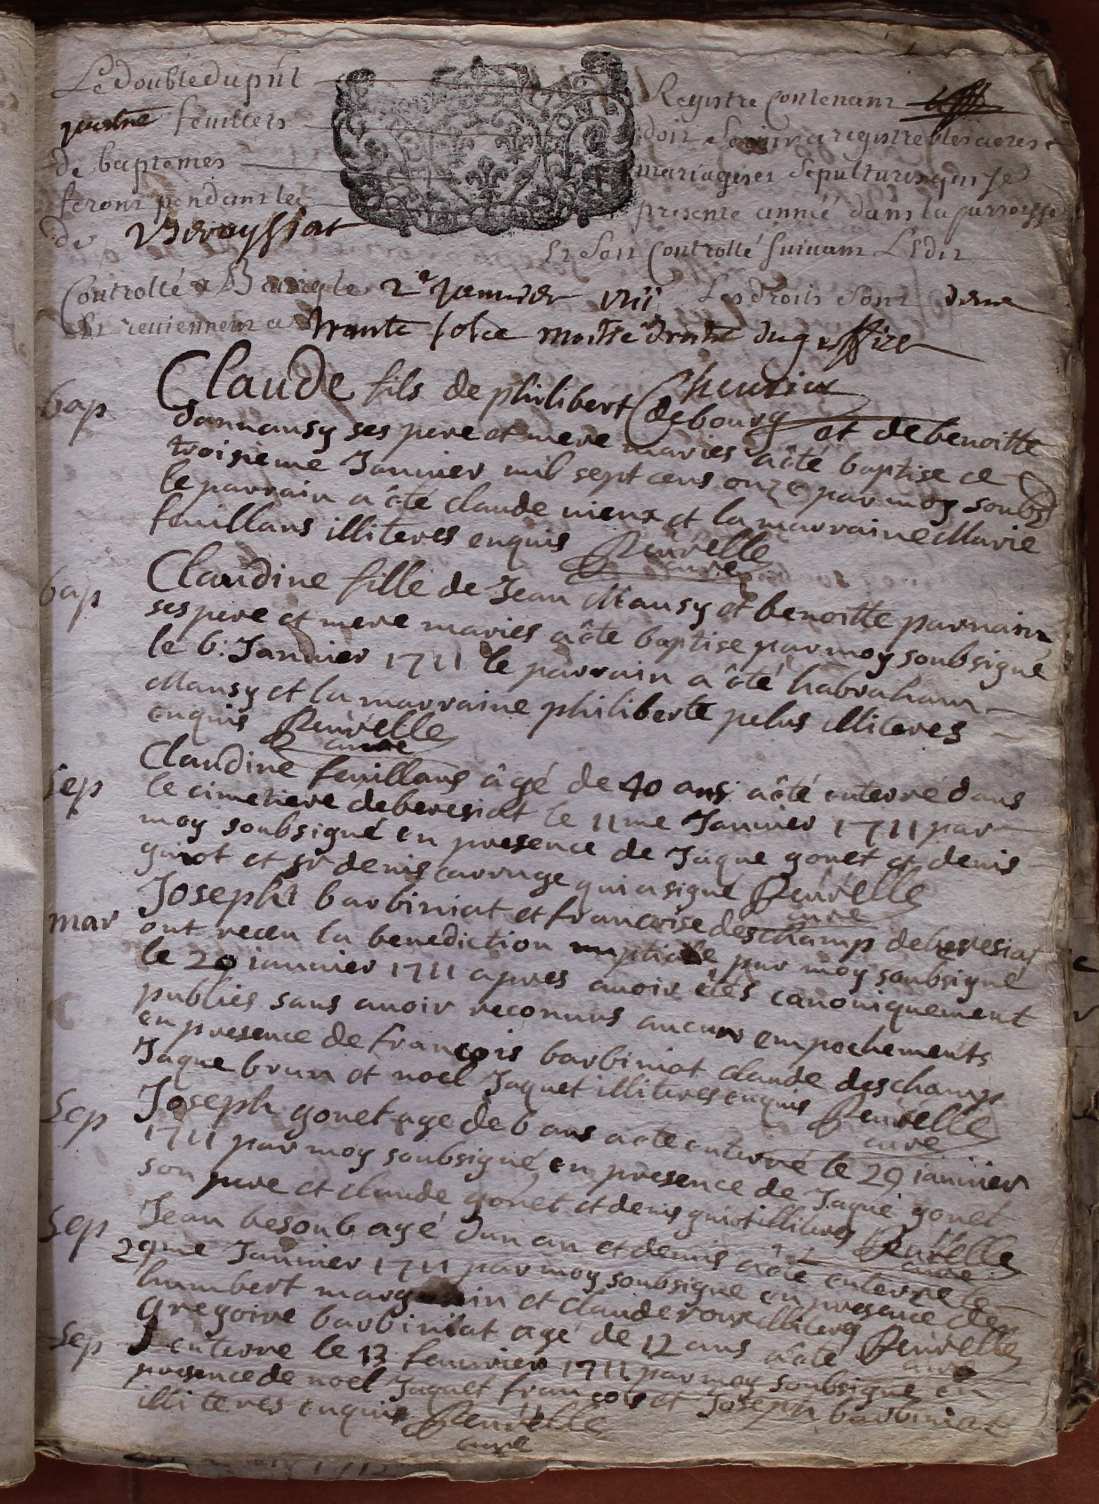 Le double du pñt Registre Contenant
quatre feuillets doit Servir a registre les actes
de baptemes mariages et Sepultures qui se
feront pendant la presente année dans la parroisse
de Bereyssiat Et Soit Controllé Suivant L'Edit
Controllé a le 2e Janvier 1711 Les droits Sont
Et reviennent a trente solse moitié droite du greffier
bap Claude fils de philibert debourg et de benoitte
dannansy ses pere et mere maries a ôté baptise ce
troisieme Janvier mil sept cens onze par moy soubs
le parrain a ôté claude vieux et la marraine Marie
feuillans illiteres enquis Reuvelle
curé
bap Claudine fille de Jean Mansy et benoitte parnain
ses pere et mere maries a ôte baptise par moy soubsigné
le 6: Janvier 1711 le parrain a ôté habraham
Mansy et la marraine philiberte pelus illiteres
enquis Reuvelle
curé
Sep Claudine feuillans âgé de 40 ans a ôté enterré dans
le cimetiere de beresiat le 11me Janvier 1711 par
moy soubsigné en presence de Jaque gonet et denis
guiot et sr denis carruge qui a signé Reuvelle
curé
mar Joseph barbiniat et francoise deschamp de beresiat
ont receu la benediction nuptiale par moy soubsigné
le 20 ianvier 1711 apres avoir etés canoniquement
publies sans avoir reconnus aucun empechements
en presence de francois barbiniat claude deschamp
Jaque brun et noel Jaquet illiteres enquis Reuvelle
curé
Sep Joseph gonet age de 6 ans a ote enterré le 29 ianvier
1711 par moy soubsigné en presence de Jaque gonet
son pere et claude gonet et denis guiot illiteres Reuvelle
curé
Sep Jean besoub agé dun an et demis a ôté enterré le
29me Janvier 1711 par moy soubsigné en presence de
humbert et claude roux illiteres Reuvelle
curé
Sep gregoire barbiniat agé de 12 ans a ôté
enterre le 13 feuvrier 1711 par moy soubsigné en
presence de noel Jaquet françois et Joseph barbiniat
illiteres enquis Reuvelle
curé